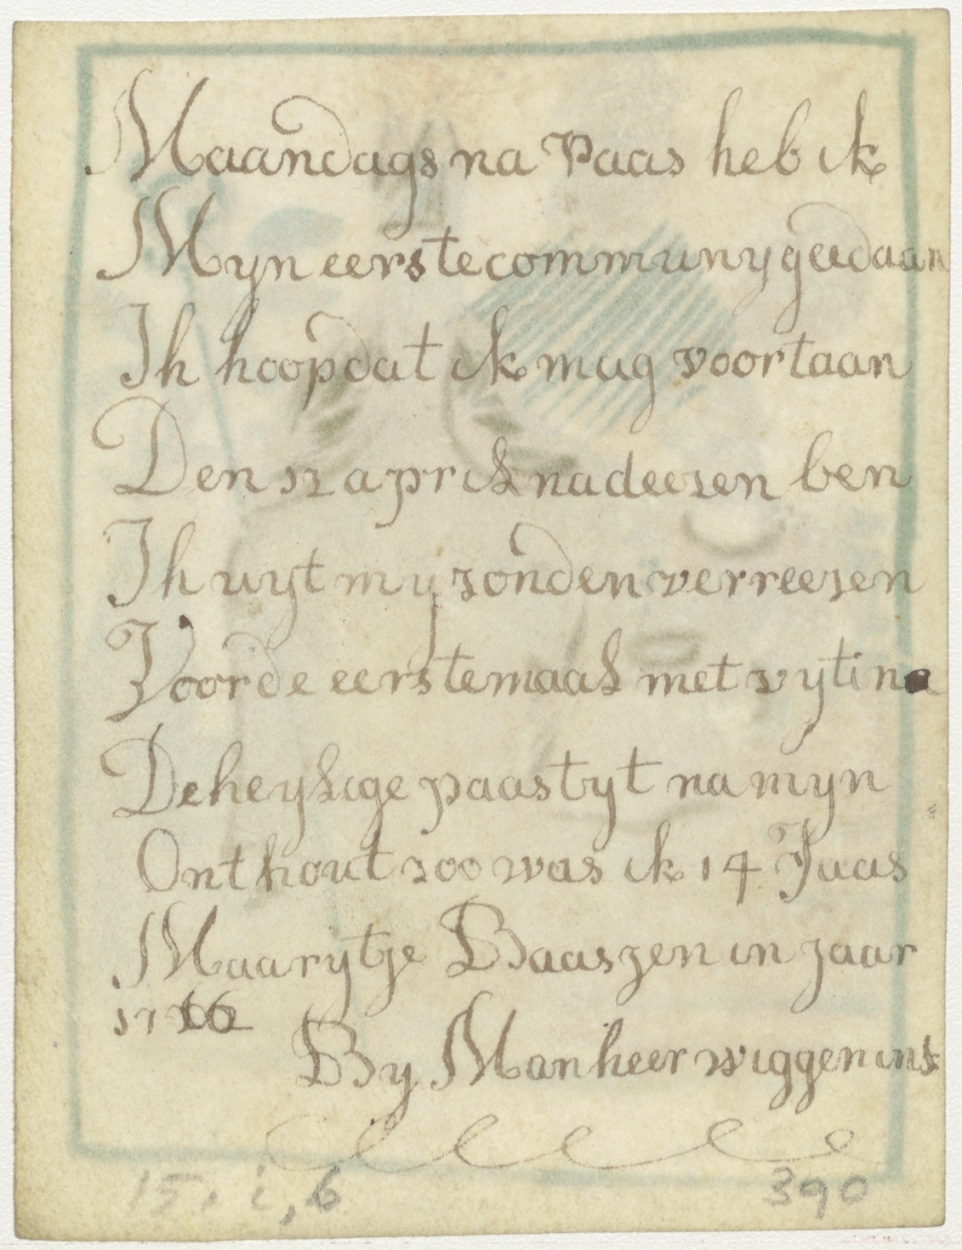 Maandags na Paas heb ik
Myn eerste communy gedaan
Ik hoop dat ik mag voortaan
Den 12 april na deezen ben
Ik uyt my zonden verreezen
Voor de eerste maal met
De heylige paastyt na myn
Onthout zoo was ik 14 Jaas
Maarytje Baaszen in jaar
17
By Manheer
15, i, 6
390